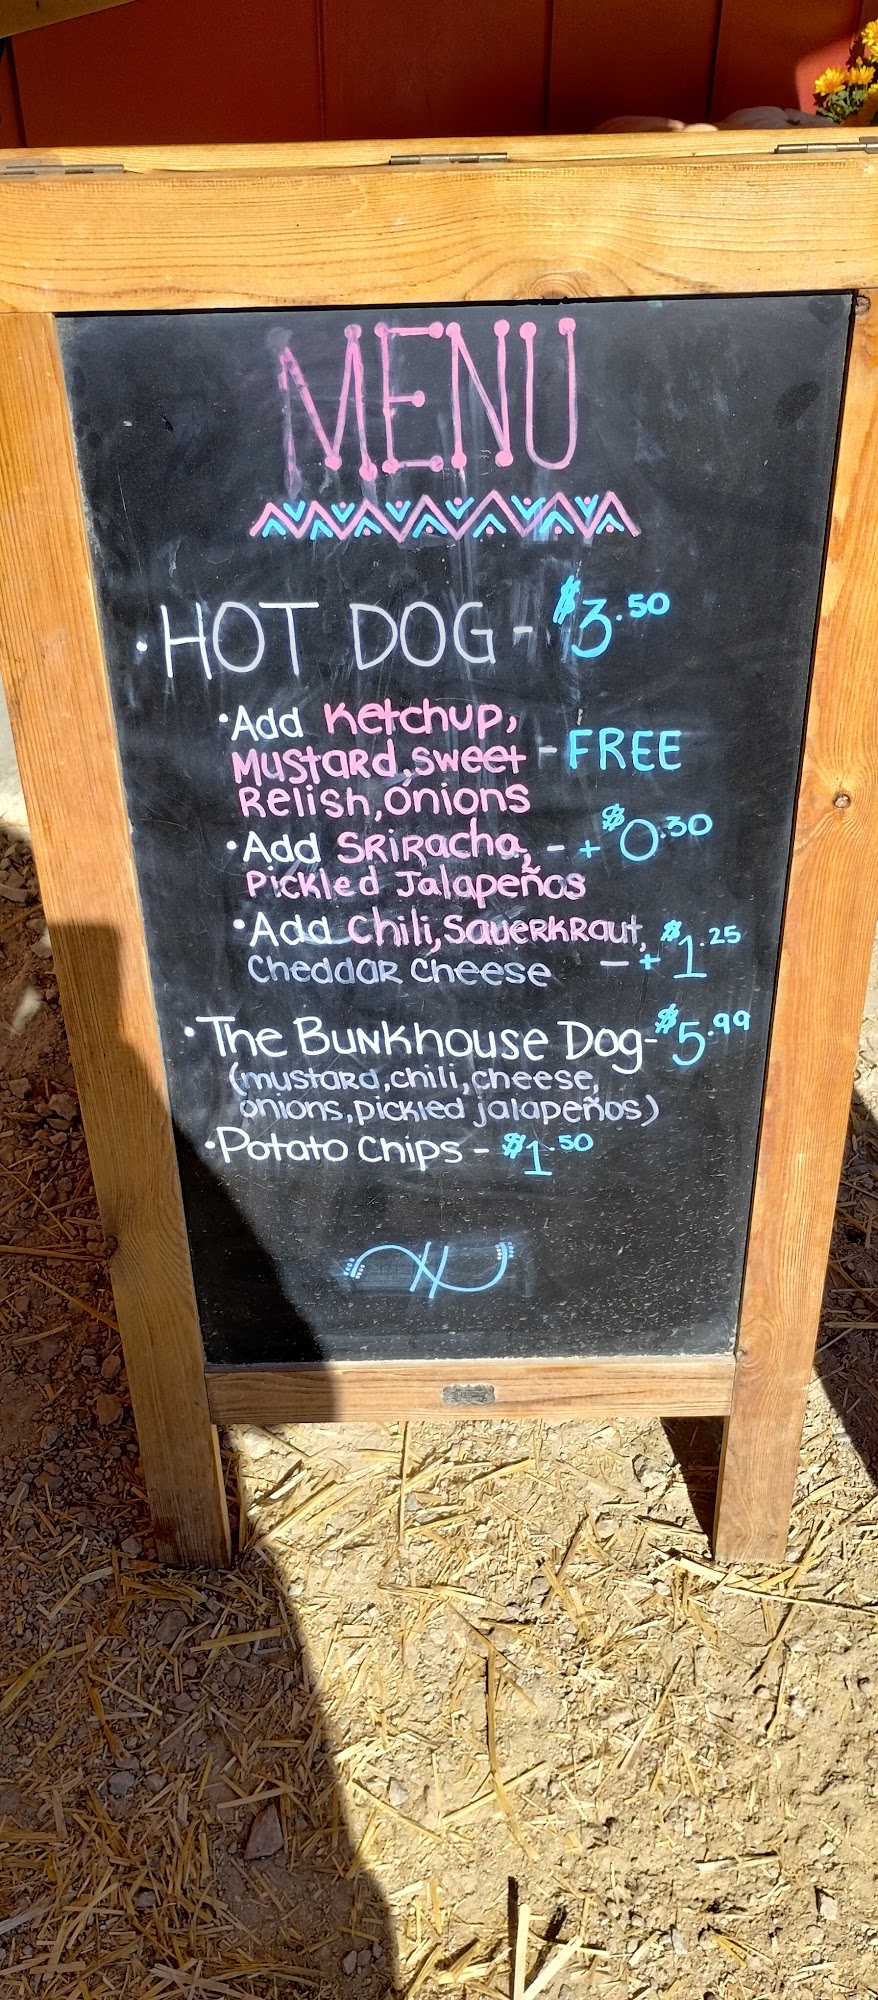 MENU
• HOT DOG - $3.50
• Add Ketchup,
Mustard, sweet - FREE
Relish, onions
• Add SRiRacha, - + $0.30
Pickled Jalapeños
• Add Chili, Sauerkraut, $1.25
Cheddar Cheese - +
• The Bunkhouse Dog - $5.99
(mustard, chili, cheese,
onions, pickled jalapeños)
• Potato Chips - $1.50